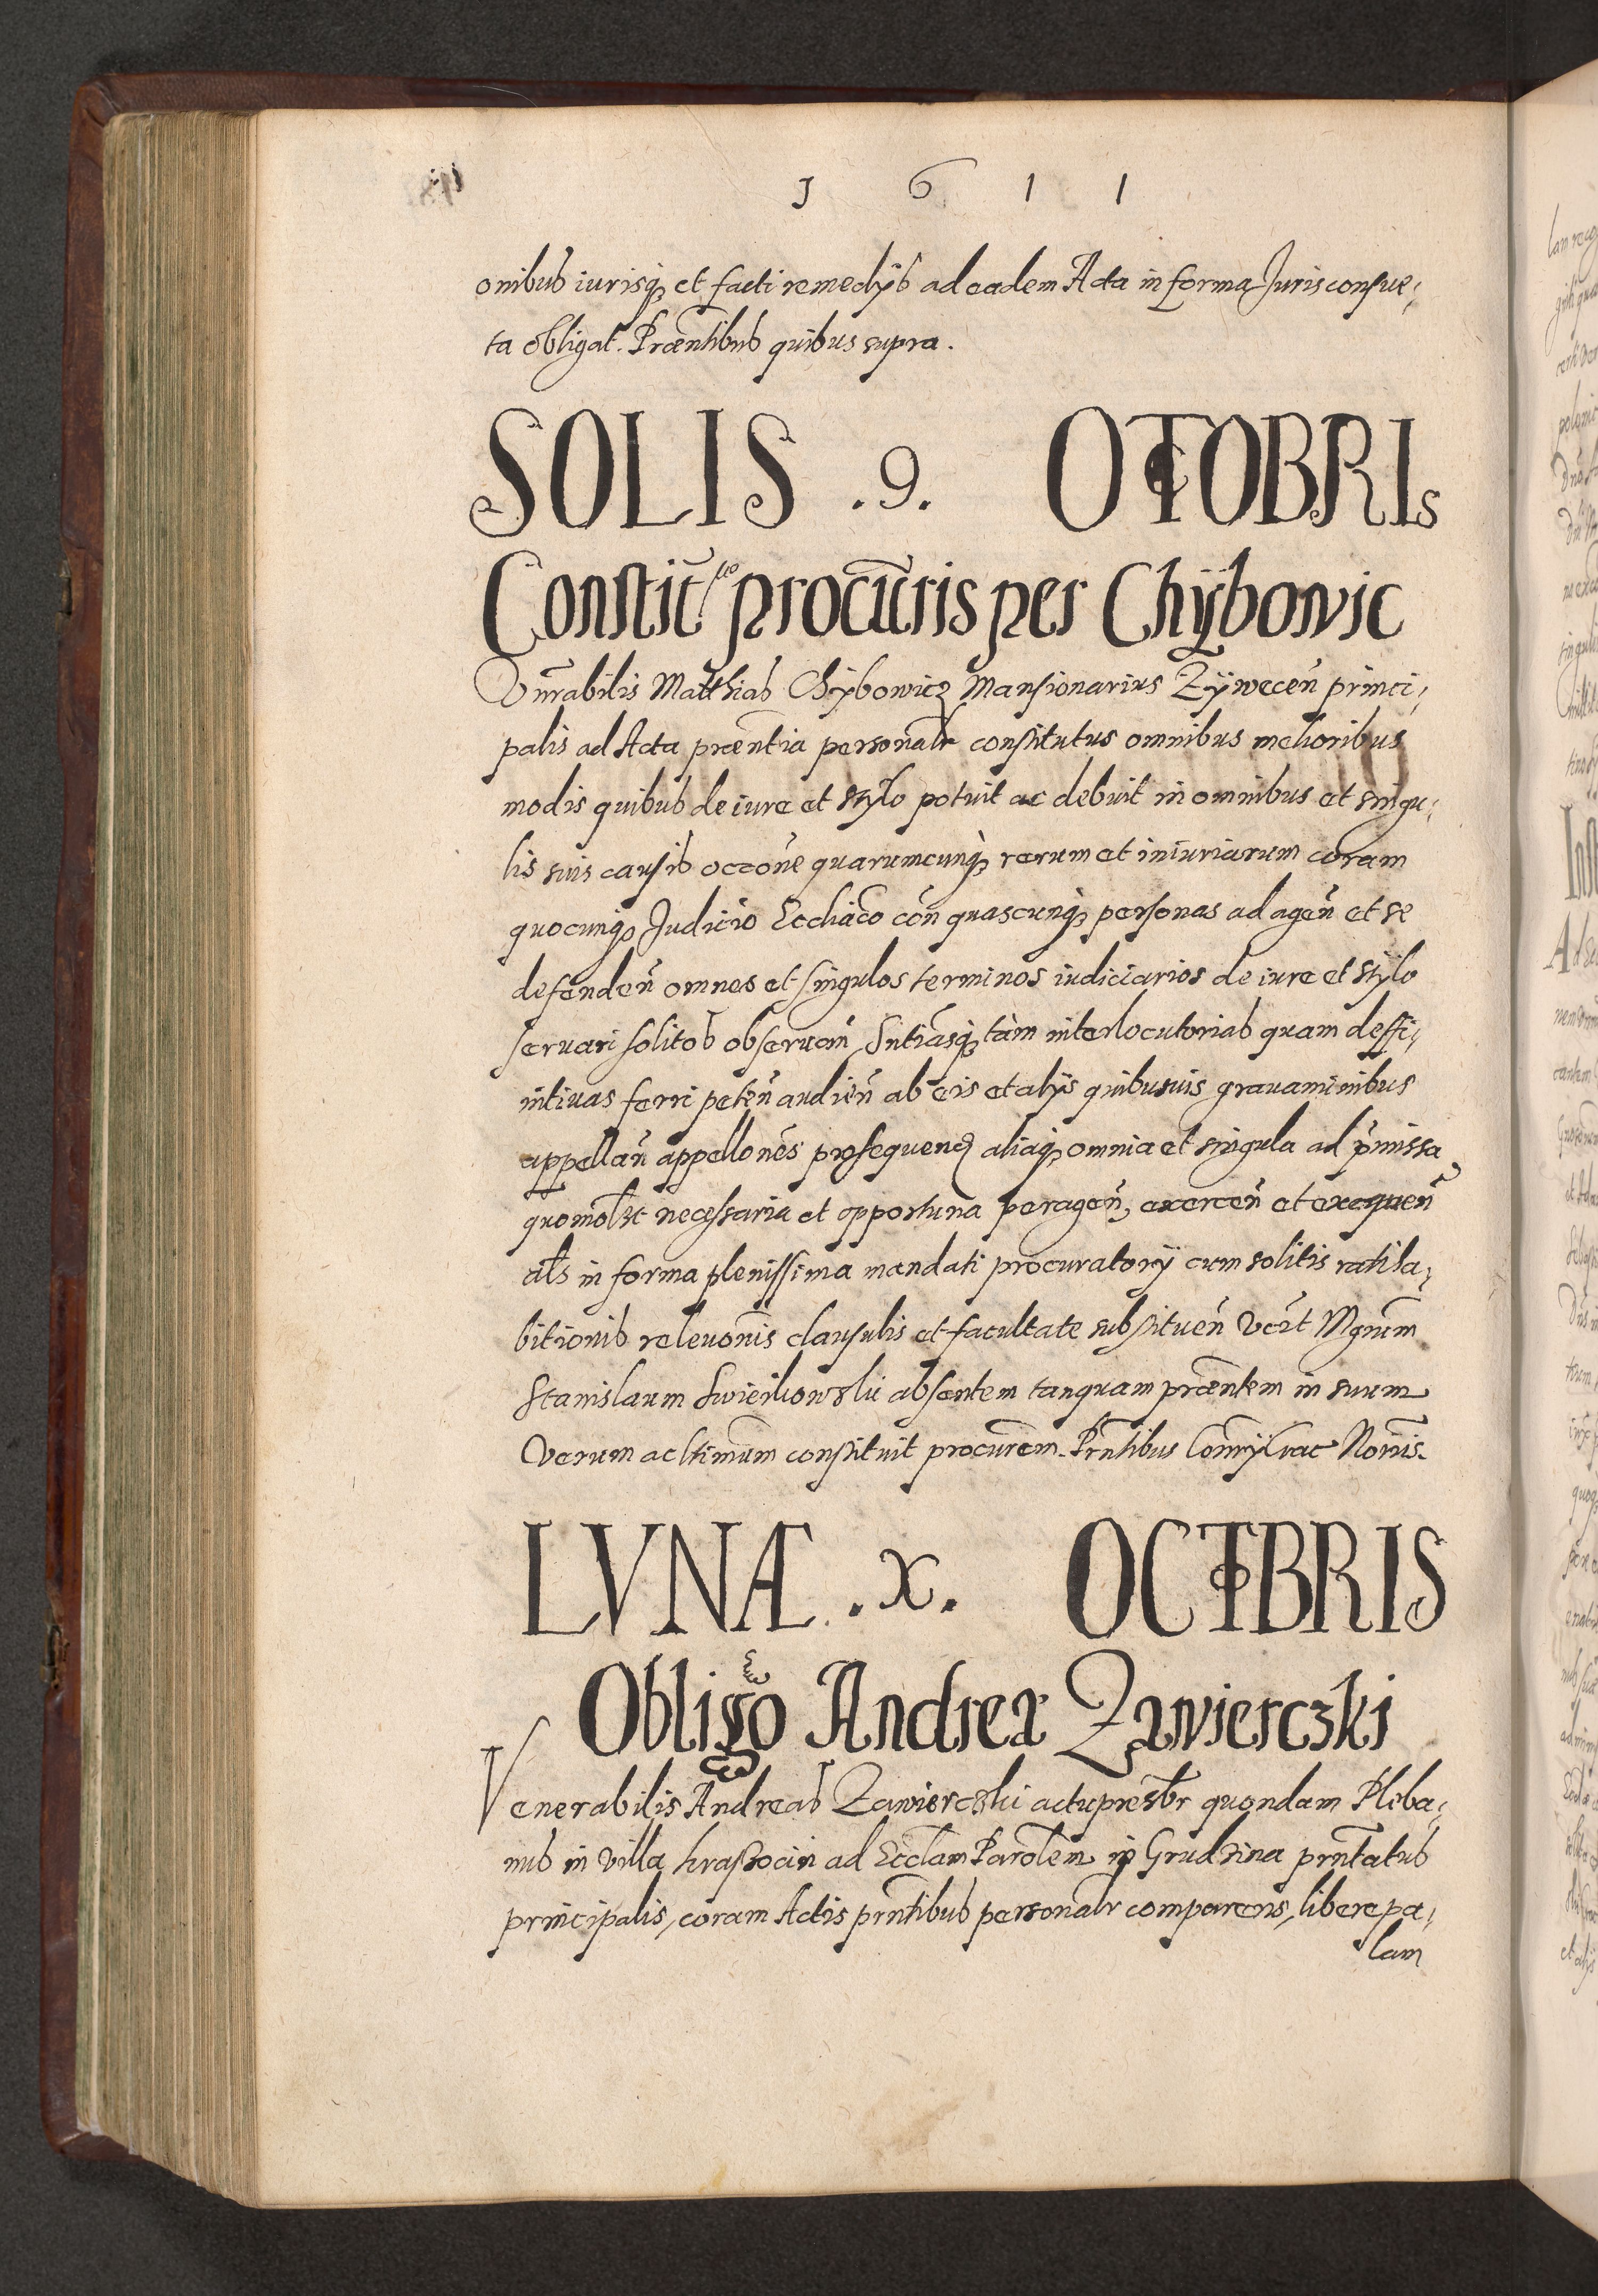 1 6 1 1
onibus iurisq; et facti remedijs ad eadem Acta in forma Juris consue,
ta obligat. Præntibus quibus supra.
SOLIS .9. OCTOBRIS
Constitutio procuris per Chÿbowic
Vnrabilis Matthias Chÿbowicz Mansionarius Zÿwecen princi,
palis ad Acta præntia personalr constitutus omnibus melioribus
modis quibus de iure et stylo potuit ac debuit in omnibus et singu,
lis suis causis occone quarumcunq; rerum et iniuriarum coram
quocunq; Judicio Eccliaco con quascunq; personas ad agen et se
defenden omnes et singulos terminos iudiciarios de iure et stÿlo
seruari solitos obseruan Sntiasq; tàm interlocutorias quam deffi,
nitiuas ferri peten audien ab eis et alijs quibusuis grauaminibus
appellan appellones prosequend aliaq; omnia et singula ad pmissa
quomolt necessaria et opportuna peragen, exercen et exequen
als in forma plenissima mandati procuratorij cum solitis ratiha,
bitionis releuonis clausulis et facultate substituen Mgrum
Stanislaum absentem tanquam præntem in suum
Verum ac ltimum constituit procurem. Prntibus
LVNÆ .x. OCTOBRIS
Obligo Andreæ Zawierczki
Venerabilis Andreas Zawierczki actu presbr quondam Pleba,
nus in villa Krassocin ad Ecclam Parolem in Grudzina prntatus
principalis, coram Actis prntibus personalr comparens, libere pa,
lam